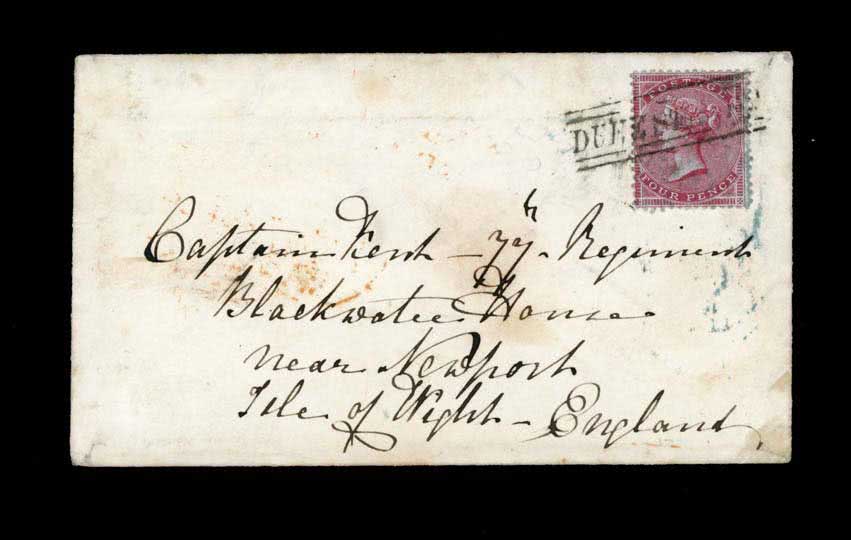 POSTAGE
DUEZ
FOUR PENCE
Captain Kent - 77th Regiment
Blackwater House
near Newport
Isle of Wight - England